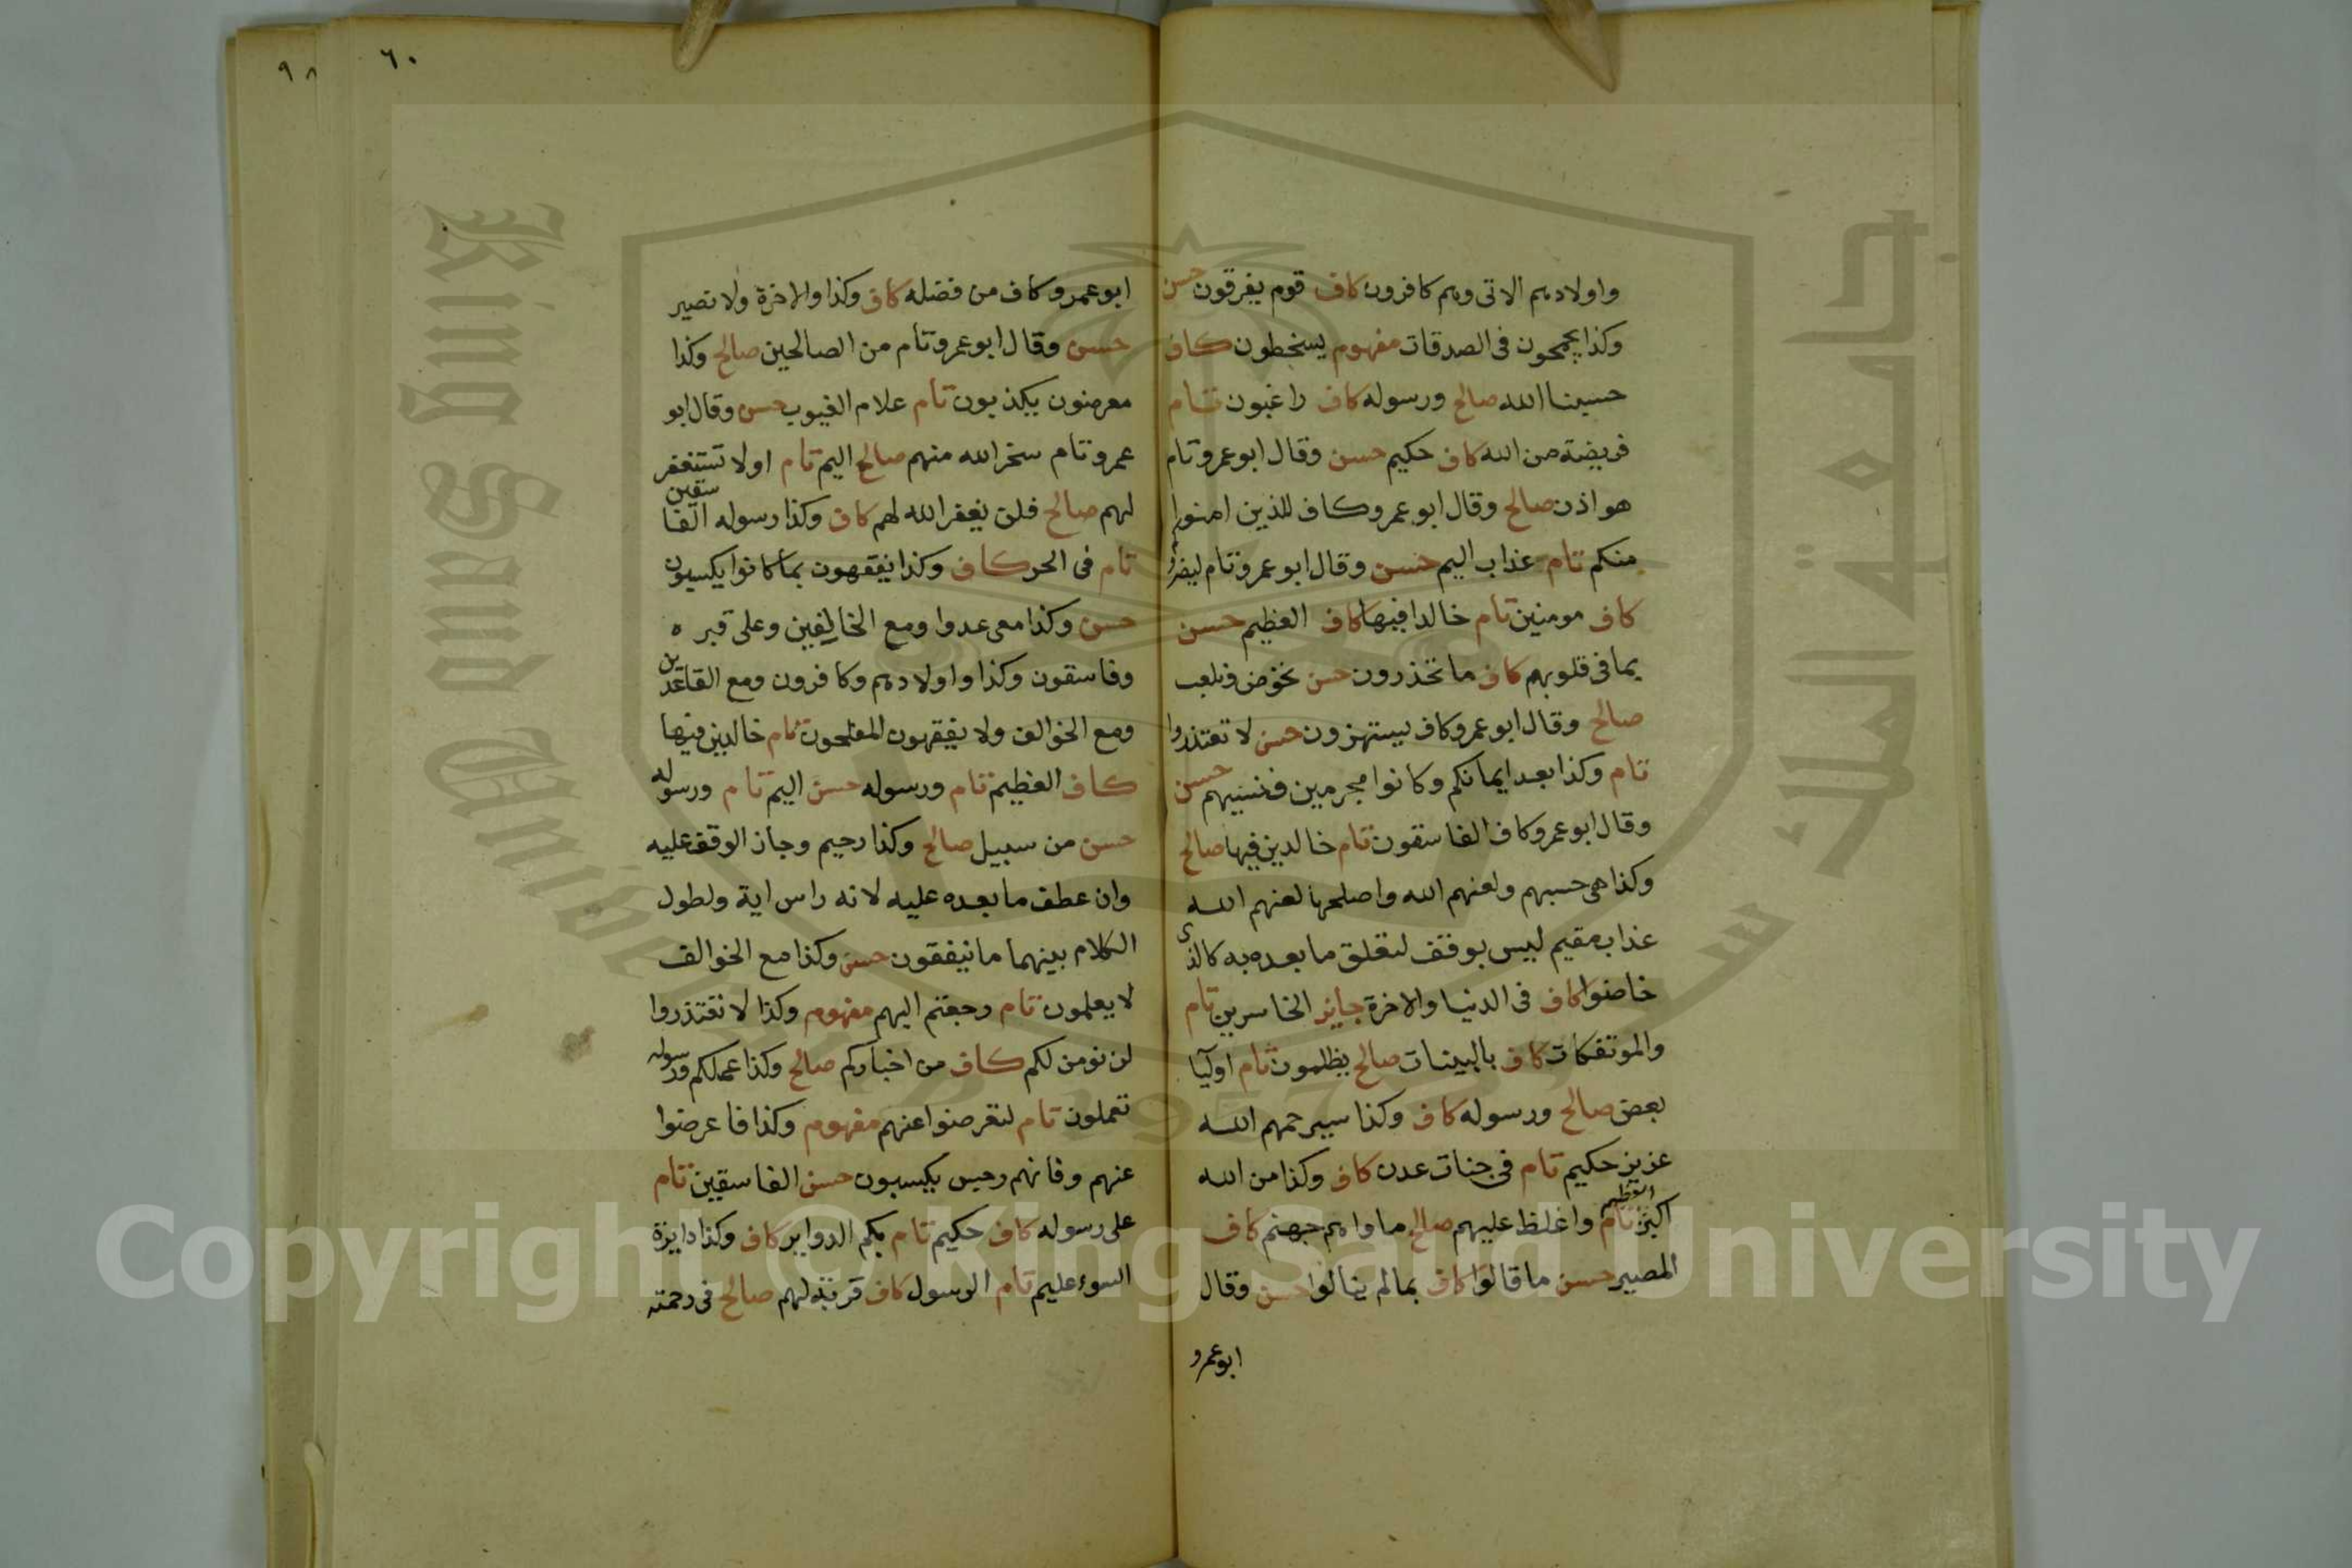 واولادهم الاتى وهم كافرون كاف قوم يفرقون حسن
وكذا يجمحون فى الصدقات مفهوم يسخطون كاف
حسبنا الله صالح ورسوله كاف راغبون تام
فريضة من الله كاف حكيم حسن وقال ابو عمرو تام
هو اذن صالح وقال ابو عمرو كاف للذين امنوا
منكم تام عذاب اليم حسن وقال ابو عمرو تام
كاف مومنين تام خالدا فيها كاف العظيم حسن
بما فى قلوبهم كاف ما تحذرون حسن نخوض ونلعب
صالح وقال ابو عمرو كاف يستهزون حسن لا تعتذروا
تام وكذا بعد ايمانكم وكانوا مجرمين فنسيهم حسن
وقال ابو عمرو كاف الفاسقون تام خالدين فيها صالح
وكذا هى حسبهم ولعنهم الله واصلحها لعنهم الله
عذاب مقيم ليس بوقف لتعلق ما بعده به كالذى
خاضوا كاف فى الدنيا والاخرة جايز الخاسرين تام
والموتفكات كاف بالبينات صالح يظلمون تام اوليا
بعض صالح ورسوله كاف وكذا سيرحمهم الله
عزيز حكيم تام فى جنات عدن كاف وكذا من الله
اكبر العظيم تام واغلظ عليهم صالح ماواهم جهنم كاف
المصير حسن ما قالوا كاف بما لم ينالوا حسن وقال
ابو عمرو
٦٠
٩٨
ابو عمرو كاف من فضله كاف وكذا والاخرة ولا نصير
حسن وقال ابو عمرو تام من الصالحين صالح وكذا
معرضون يكذبون تام علام الغيوب حسن وقال ابو
عمرو تام سخر الله منهم صالح اليم تام اولا تستغفر
لهم صالح فلن يغفر الله لهم كاف وكذا رسوله الفاسقين
تام فى الحر كاف وكذا يفقهون بما كانوا يكسبون
حسن وكذا معى عدوا ومع الخالفين وعلى قبره
وفاسقون وكذا واولادهم وكافرون ومع القاعدين
ومع الخوالف ولا يفقهون المفلحون تام خالدين فيها
كاف العظيم تام ورسوله حسن اليم تام ورسوله
حسن من سبيل صالح وكذا رحيم وجاز الوقف عليه
وان عطف ما بعده عليه لانه راس اية ولطول
الكلام بينهما ما ينفقون حسن وكذا مع الخوالف
لا يعلمون تام رجعتم اليهم مفهوم وكذا لا تعتذروا
لن نومن لكم كاف من اخباركم صالح وكذا عملكم ورسوله
تعملون تام لتعرضوا عنهم مفهوم وكذا فاعرضوا
عنهم وفانهم رجس يكسبون حسن الفاسقين تام
على رسوله كاف حكيم تام بكم الدواير كاف وكذا دايرة
السوء عليم تام الرسول كاف قربة لهم صالح فى رحمته
Copyright © King Saud University